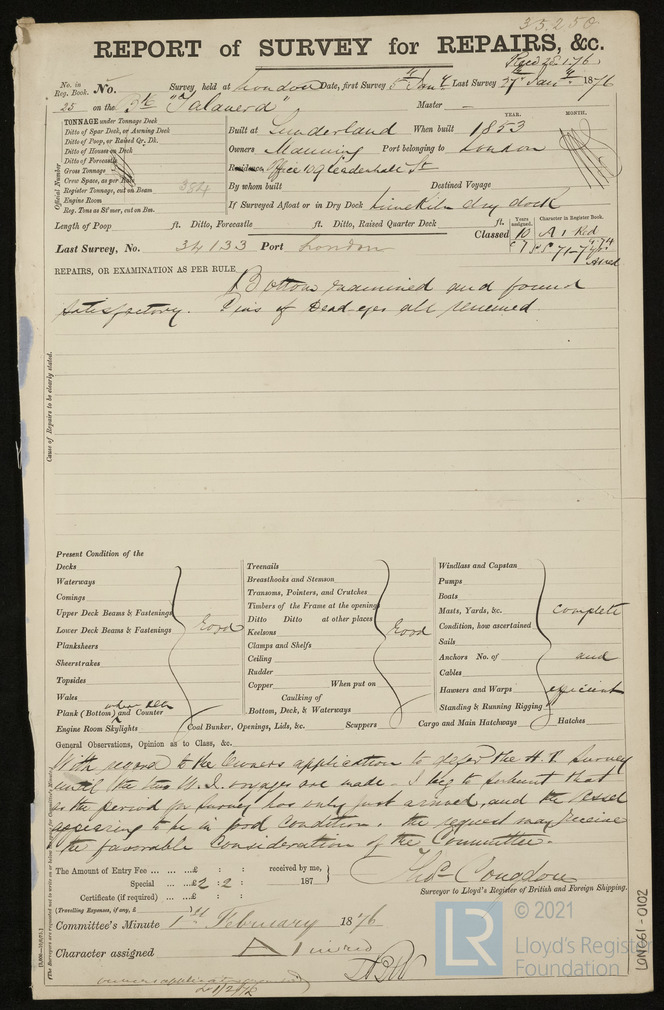 35250
REPORT of SURVEY for REPAIRS, &c.
Recd 28.1.76
No. in Reg. Book. No. Survey held at London Date, first Survey 5th Jany Last Survey 27th Jany 1876
25 on the Bk "Talavera" Master —
TONNAGE under Tonnage Deck
Ditto of Spar Deck, or Awning Deck
Ditto of Poop, or Raised Qr. Dk.
Ditto of Houses on Deck
Ditto of Forecastle
Gross Tonnage
Crew Space, as per Rule
Register Tonnage, cut on Beam 384
Engine Room
Reg. Tons as St'mer, cut on Bm.
Official Number
YEAR. MONTH.
Built at Sunderland When built 1853
Owners Manning Port belonging to London
Residence Office 109 Leadenhall St
By whom built Destined Voyage
If Surveyed Afloat or in Dry Dock Limekiln dry dock
Length of Poop ft. Ditto, Forecastle ft. Ditto, Raised Quarter Deck ft.
Years assigned. Character in Register Book.
Classed 10 A 1 Red
Last Survey, No. 34133 Port London
REPAIRS, OR EXAMINATION AS PER RULE
Bottom examined and found
satisfactory. Pins of Dead-eyes all renewed.
Cause of Repairs to be clearly stated.
Present Condition of the
Decks
Waterways
Comings
Upper Deck Beams & Fastenings
Lower Deck Beams & Fastenings Good
Planksheers
Sheerstrakes
Topsides
Wales
Plank (Bottom) and Counter
Engine Room Skylights
Treenails
Breasthooks and Stemson
Transoms, Pointers, and Crutches
Timbers of the Frame at the openings
Ditto Ditto at other places
Keelsons Good
Clamps and Shelfs
Ceiling
Rudder
Copper When put on
Caulking of
Bottom, Deck, & Waterways
Windlass and Capstan
Pumps
Boats
Masts, Yards, &c. Complete
Condition, how ascertained
Sails
Anchors No. of and
Cables
Hawsers and Warps efficient
Standing & Running Rigging
Coal Bunker, Openings, Lids, &c. Scuppers Cargo and Main Hatchways Hatches
General Observations, Opinion as to Class, &c.
With regard to the Owners application to defer the H.T. Survey
until the two W.I. voyages are made - I beg to submit that
as the period for survey has only just arrived, and the vessel
appearing to be in good condition, the request may receive
the favorable consideration of the Committee.
The Amount of Entry Fee ... ... £ : : received by me,
Special ... ... £ 2 : 2 : 187
Certificate (if required) ... £ : :
(Travelling Expenses, if any, £ )
Thos Congdon
Surveyor to Lloyd's Register of British and Foreign Shipping.
Committee's Minute 1st February 1876
Character assigned A 1 in red
LR
© 2021
Lloyd's Register
Foundation
LON661-0102